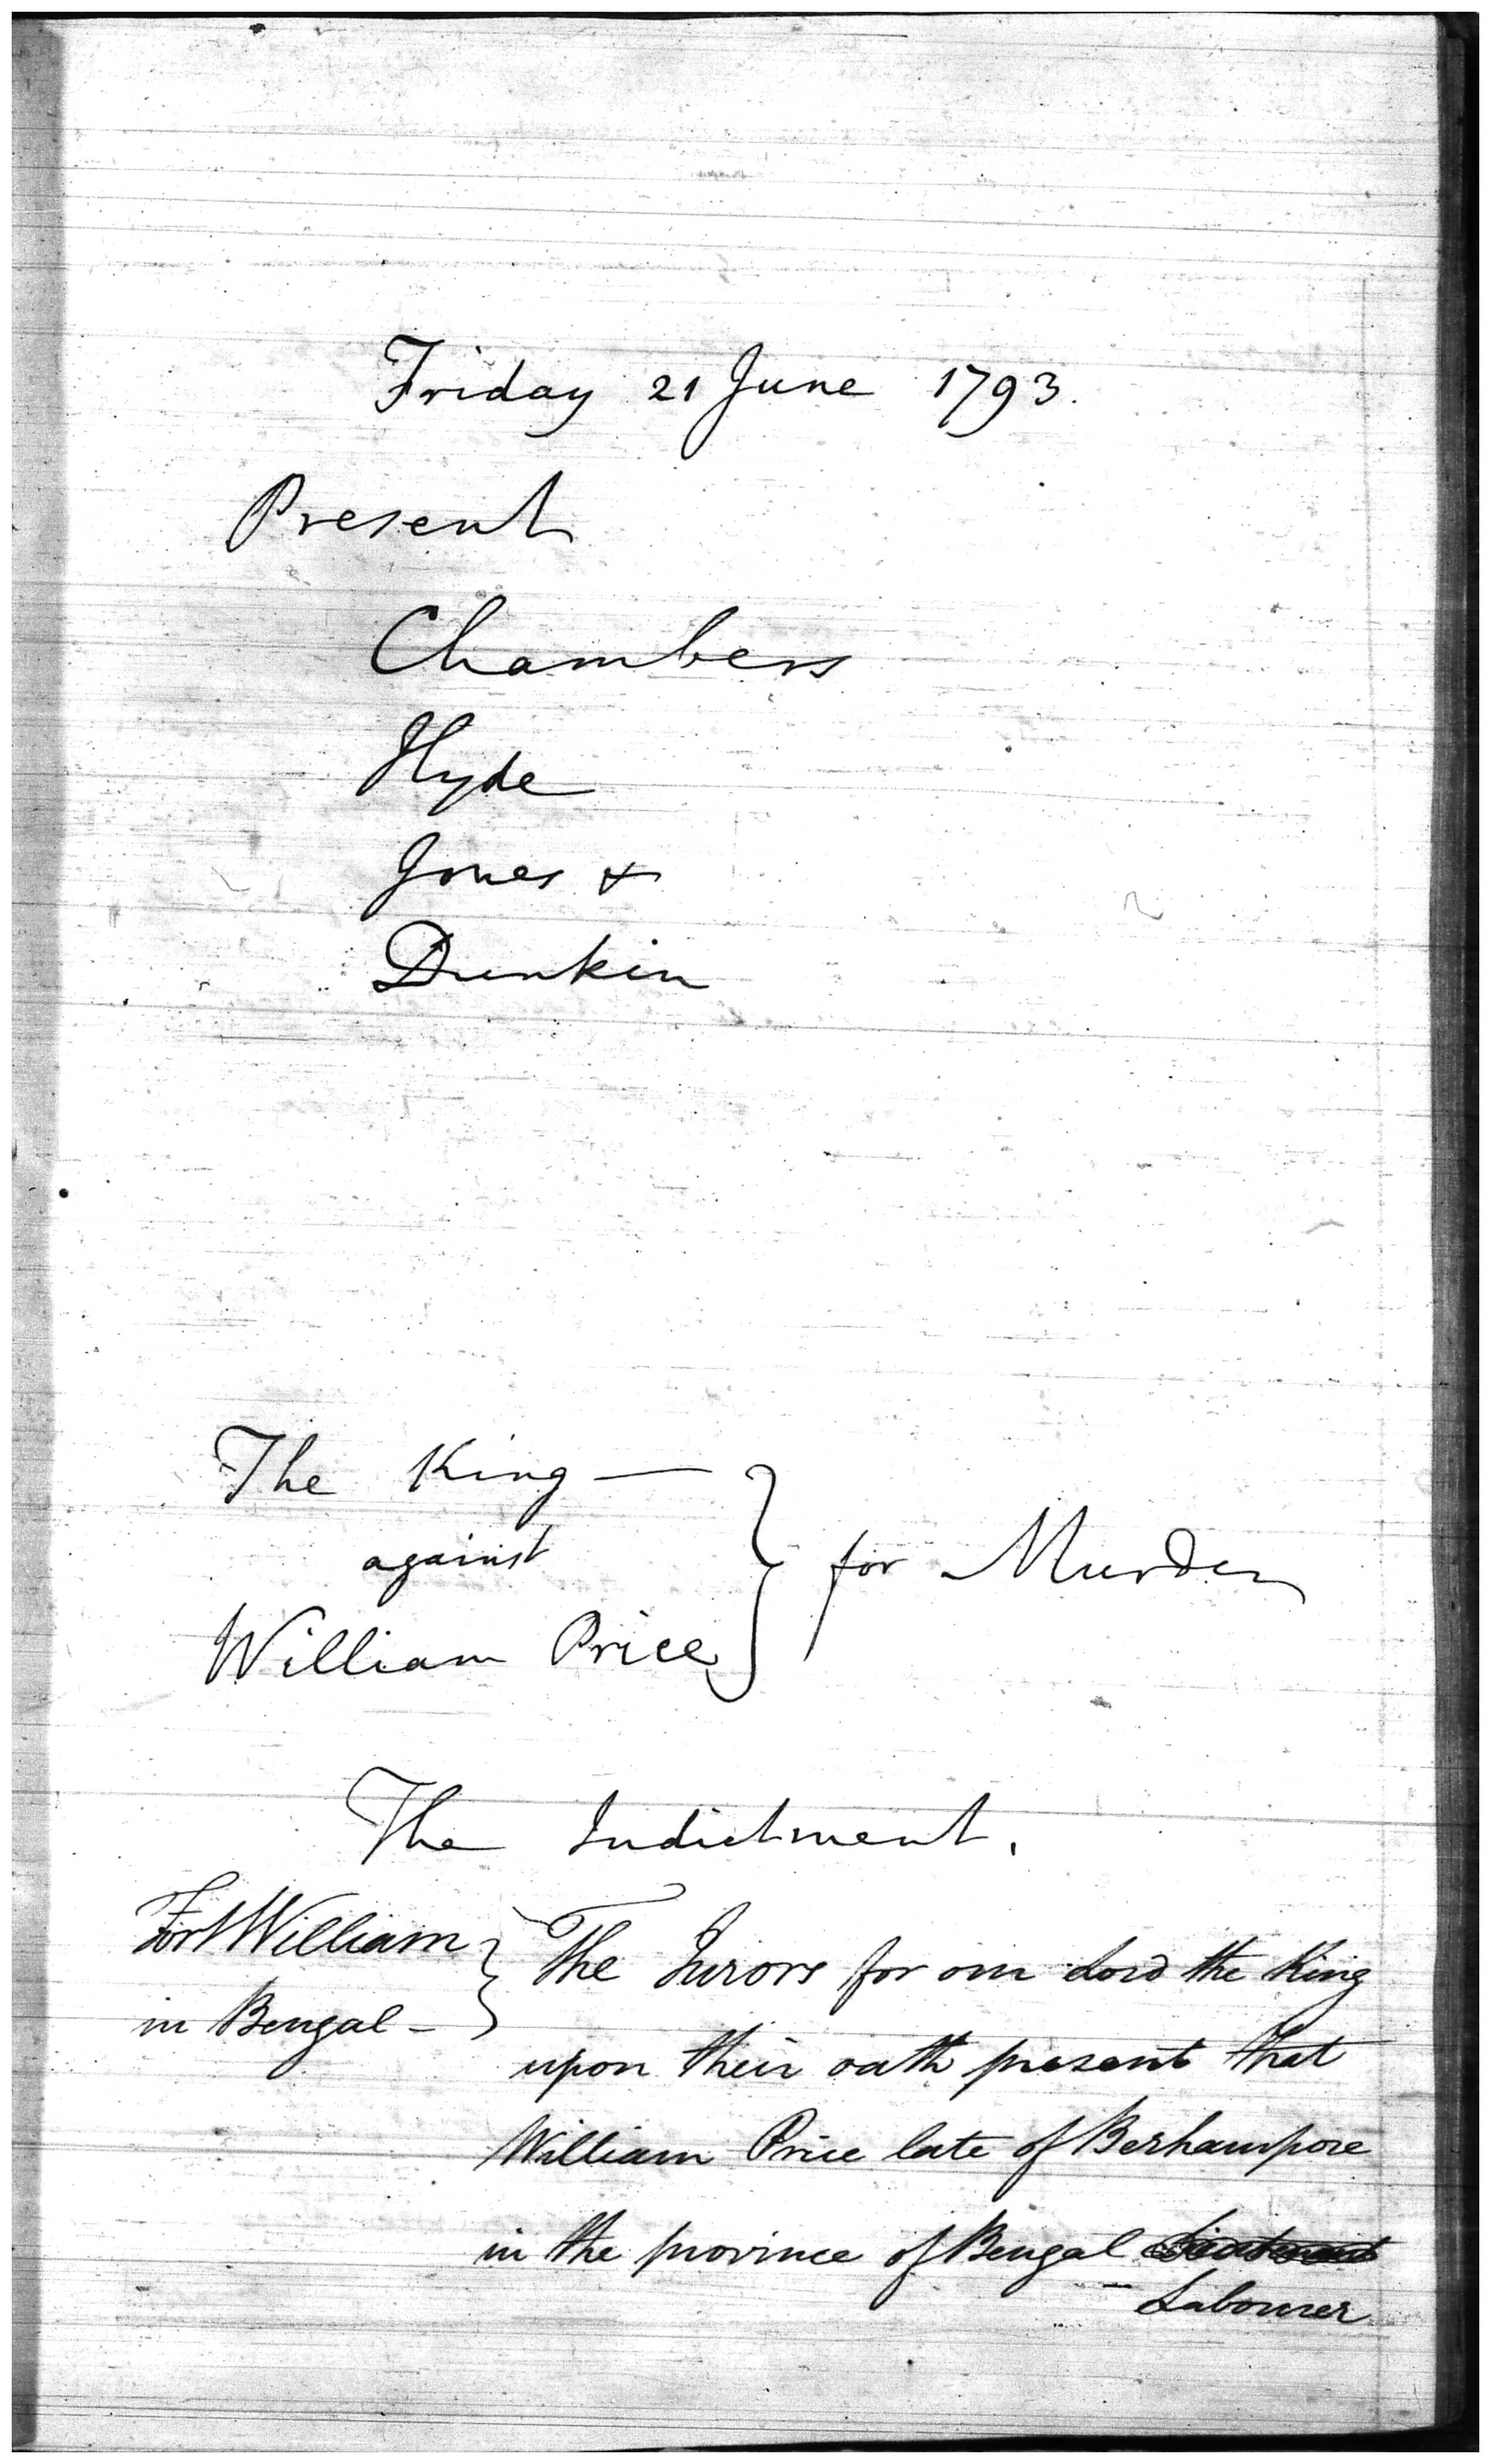 Friday 21 June 1793.
Present
Chambers
Hyde
Jones &
Dunkin
The King —
against
William Price
} for Murder
The Indictment.
Fort William
in Bengal -
} The Jurors for our Lord the King
upon their oath present that
William Price late of Berhampore
in the province of Bengal
Labourer